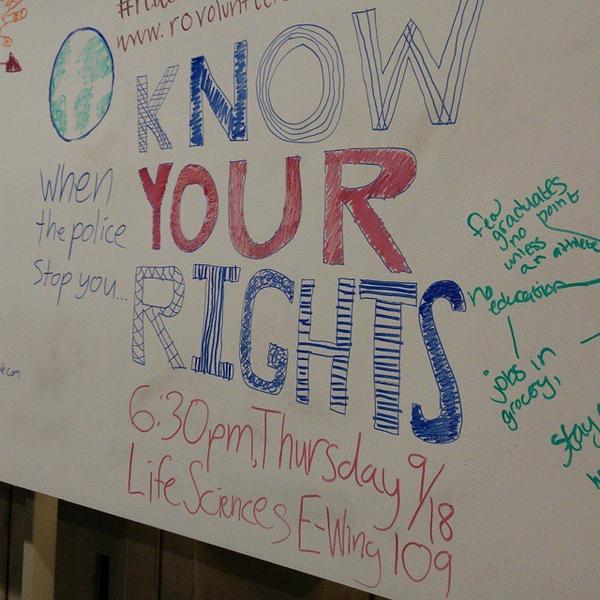 www.rovolunt
KNOW
YOUR
RIGHTS
When
the police
Stop you...
6:30pm, Thursday 9/18
Life Sciences E-Wing 109
few
graduates
no point
unless
an athlete
no
education
jobs in
grocery,
stay